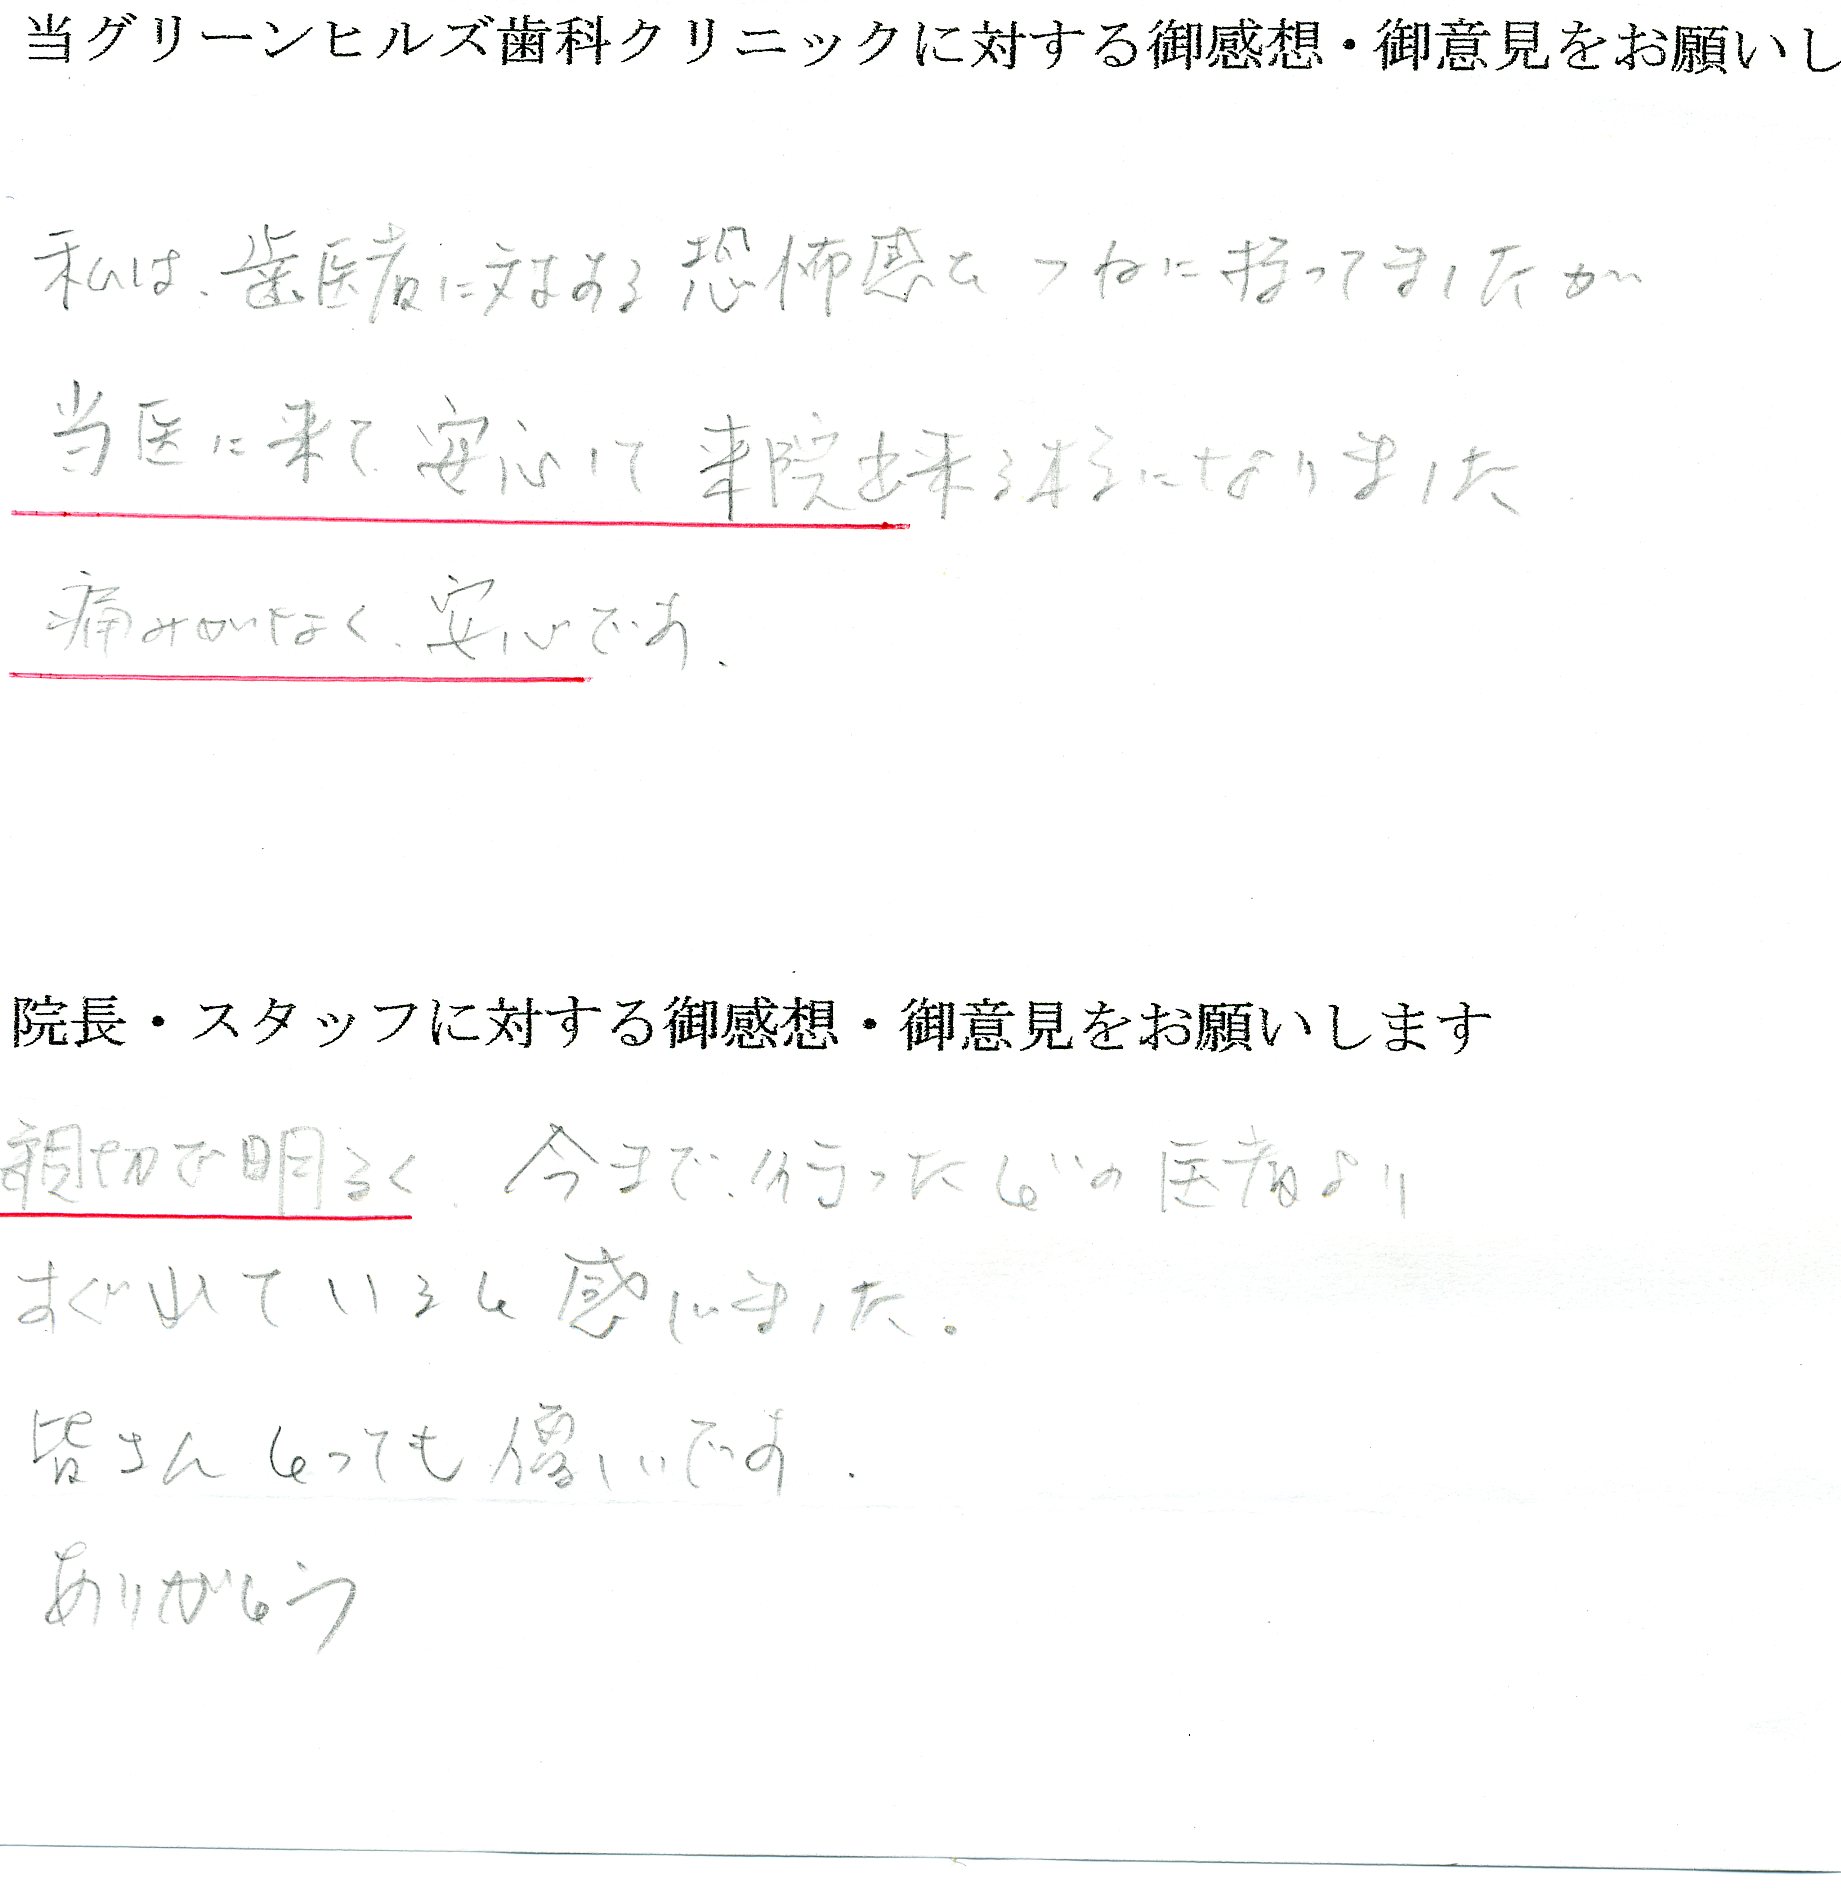 当グリーンヒルズ歯科クリニックに対する御感想・御意見をお願いし
私は、歯医者に対する恐怖感をつねに持ってましたが
当医に来て安心して来院出来る様になりました
痛みがなく、安心です.
院長・スタッフに対する御感想・御意見をお願いします
親切で明るく、今まで行ったどの医者より
すぐれていると感じました。
皆さんとっても優しいです.
ありがとう